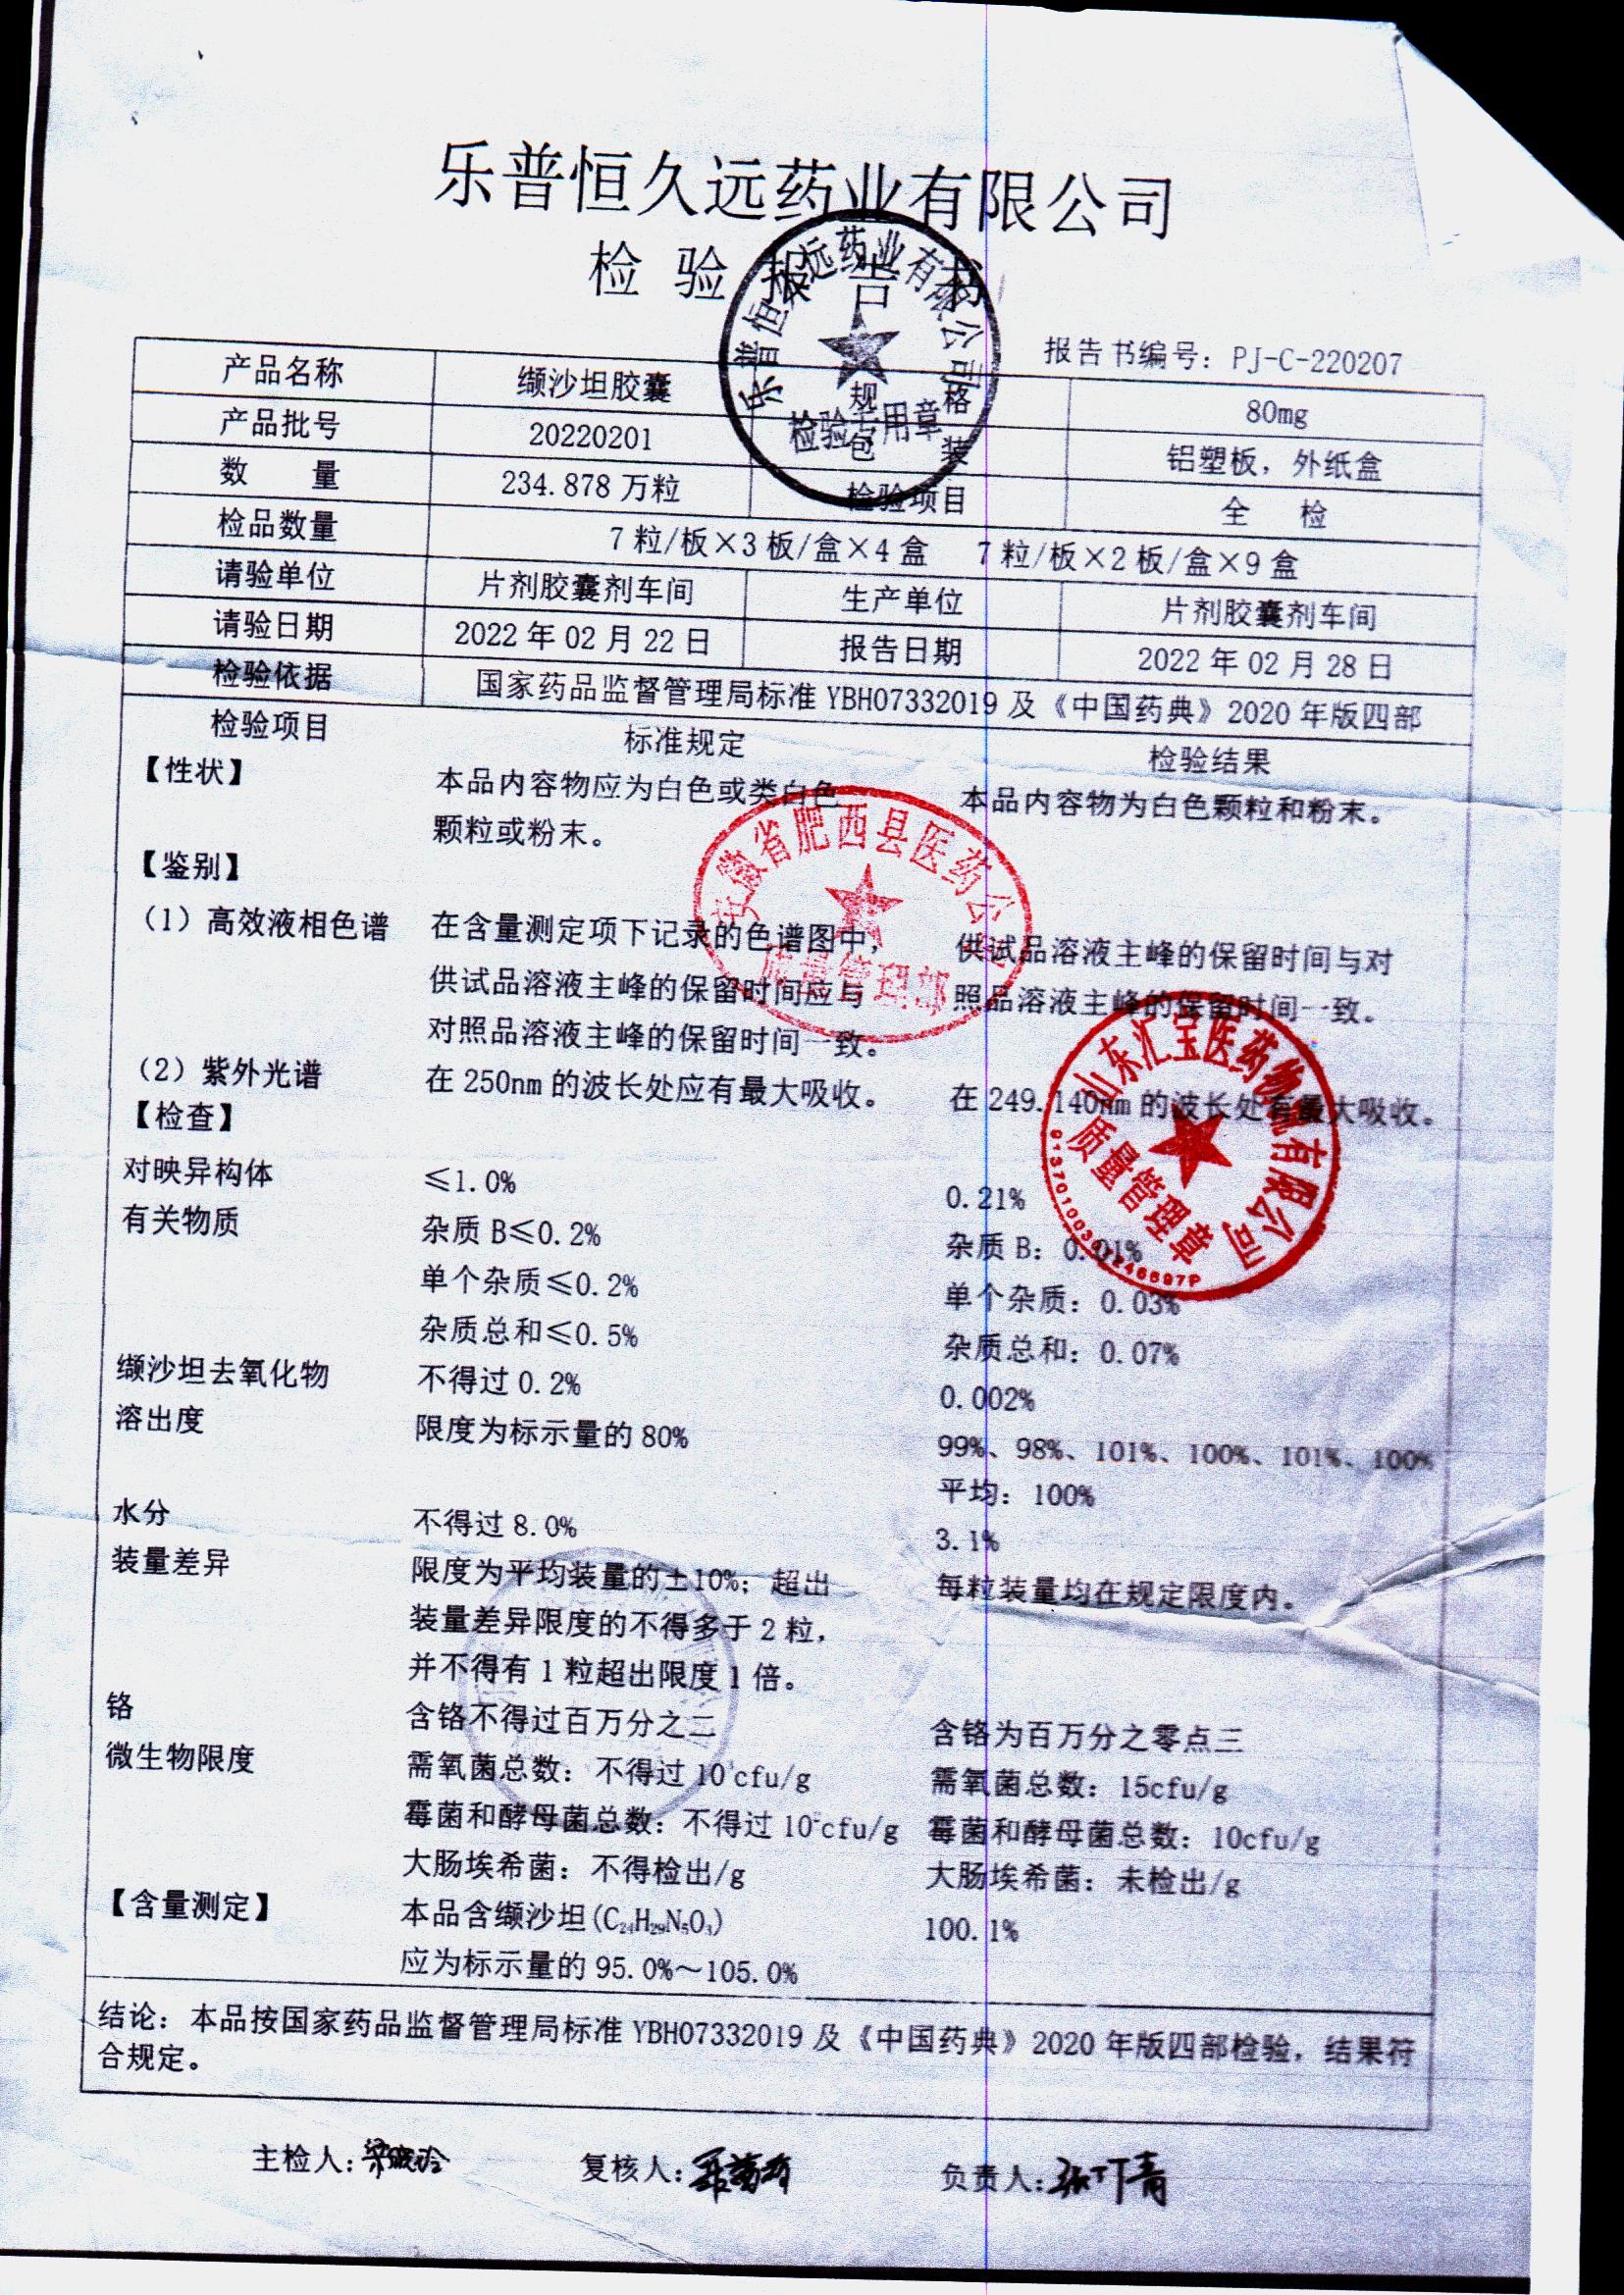 乐普恒久远药业有限公司
检 验 报 告 书
乐普恒久远药业有限公司
检验专用章
报告书编号：PJ-C-220207
产品名称 缬沙坦胶囊 规 格 80mg
产品批号 20220201 包 装 铝塑板，外纸盒
数 量 234.878 万粒 检验项目 全 检
检品数量 7 粒/板×3 板/盒×4 盒 7 粒/板×2 板/盒×9 盒
请验单位 片剂胶囊剂车间 生产单位 片剂胶囊剂车间
请验日期 2022 年 02 月 22 日 报告日期 2022 年 02 月 28 日
检验依据 国家药品监督管理局标准 YBH07332019 及《中国药典》2020 年版四部
检验项目 标准规定 检验结果
【性状】 本品内容物应为白色或类白色 本品内容物为白色颗粒和粉末。
颗粒或粉末。
【鉴别】
安徽省肥西县医药公司
质量管理部
（1）高效液相色谱 在含量测定项下记录的色谱图中， 供试品溶液主峰的保留时间与对
供试品溶液主峰的保留时间应与 照品溶液主峰的保留时间一致。
对照品溶液主峰的保留时间一致。
（2）紫外光谱 在 250nm 的波长处应有最大吸收。 在 249.140nm 的波长处有最大吸收。
山东汇宝医药物流有限公司
质量管理章
【检查】
对映异构体 ≤1.0% 0.21%
有关物质 杂质 B≤0.2% 杂质 B：0.01%
单个杂质≤0.2% 单个杂质：0.03%
杂质总和≤0.5% 杂质总和：0.07%
缬沙坦去氧化物 不得过 0.2% 0.002%
溶出度 限度为标示量的 80% 99%、98%、101%、100%、101%、100%
平均：100%
水分 不得过 8.0% 3.1%
装量差异 限度为平均装量的±10%；超出 每粒装量均在规定限度内。
装量差异限度的不得多于 2 粒，
并不得有 1 粒超出限度 1 倍。
铬 含铬不得过百万分之二 含铬为百万分之零点三
微生物限度 需氧菌总数：不得过 10³cfu/g 需氧菌总数：15cfu/g
霉菌和酵母菌总数：不得过 10²cfu/g 霉菌和酵母菌总数：10cfu/g
大肠埃希菌：不得检出/g 大肠埃希菌：未检出/g
【含量测定】 本品含缬沙坦(C₂₄H₂₉N₅O₃) 100.1%
应为标示量的 95.0%～105.0%
结论：本品按国家药品监督管理局标准 YBH07332019 及《中国药典》2020 年版四部检验，结果符
合规定。
主检人： 复核人： 负责人：